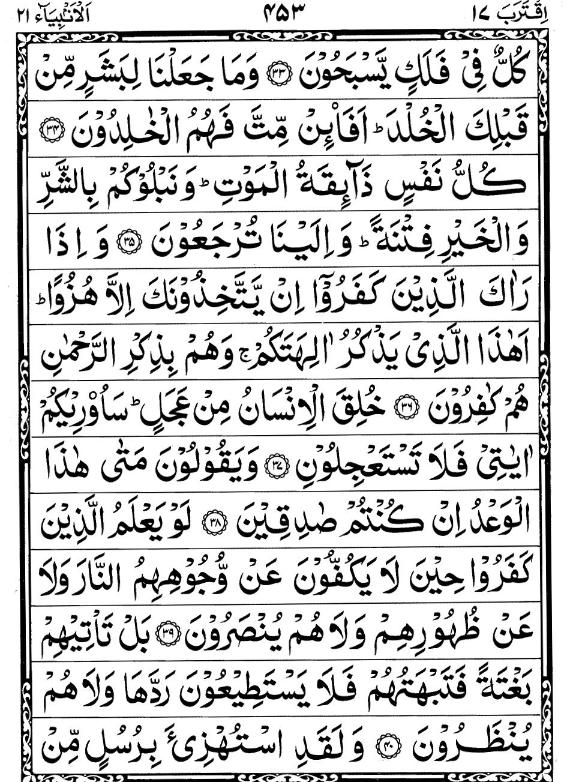 اِقْتَرَبَ ١٧ ٤٥٣ اَلْاَنْۢبِيَآء ٢١
كُلٌّ فِیْ فَلَكٍ يَّسْبَحُوْنَ ۝٣٣ وَمَا جَعَلْنَا لِبَشَرٍ مِّنْ
قَبْلِكَ الْخُلْدَ ؕ اَفَا۠ئِنْ مِّتَّ فَهُمُ الْخٰلِدُوْنَ ۝٣٤
كُلُّ نَفْسٍ ذَآئِقَةُ الْمَوْتِ ؕ وَنَبْلُوْكُمْ بِالشَّرِّ
وَالْخَيْرِ فِتْنَةً ؕ وَاِلَيْنَا تُرْجَعُوْنَ ۝٣٥ وَاِذَا
رَاٰكَ الَّذِيْنَ كَفَرُوْۤا اِنْ يَّتَّخِذُوْنَكَ اِلَّا هُزُوًا ؕ
اَهٰذَا الَّذِیْ يَذْكُرُ اٰلِهَتَكُمْ ۚ وَهُمْ بِذِكْرِ الرَّحْمٰنِ
هُمْ كٰفِرُوْنَ ۝٣٦ خُلِقَ الْاِنْسَانُ مِنْ عَجَلٍ ؕ سَاُورِيْكُمْ
اٰيٰتِیْ فَلَا تَسْتَعْجِلُوْنِ ۝٣٧ وَيَقُوْلُوْنَ مَتٰى هٰذَا
الْوَعْدُ اِنْ كُنْتُمْ صٰدِقِيْنَ ۝٣٨ لَوْ يَعْلَمُ الَّذِيْنَ
كَفَرُوْا حِيْنَ لَا يَكُفُّوْنَ عَنْ وُّجُوْهِهِمُ النَّارَ وَلَا
عَنْ ظُهُوْرِهِمْ وَلَا هُمْ يُنْصَرُوْنَ ۝٣٩ بَلْ تَاْتِيْهِمْ
بَغْتَةً فَتَبْهَتُهُمْ فَلَا يَسْتَطِيْعُوْنَ رَدَّهَا وَلَا هُمْ
يُنْظَرُوْنَ ۝٤٠ وَلَقَدِ اسْتُهْزِئَ بِرُسُلٍ مِّنْ